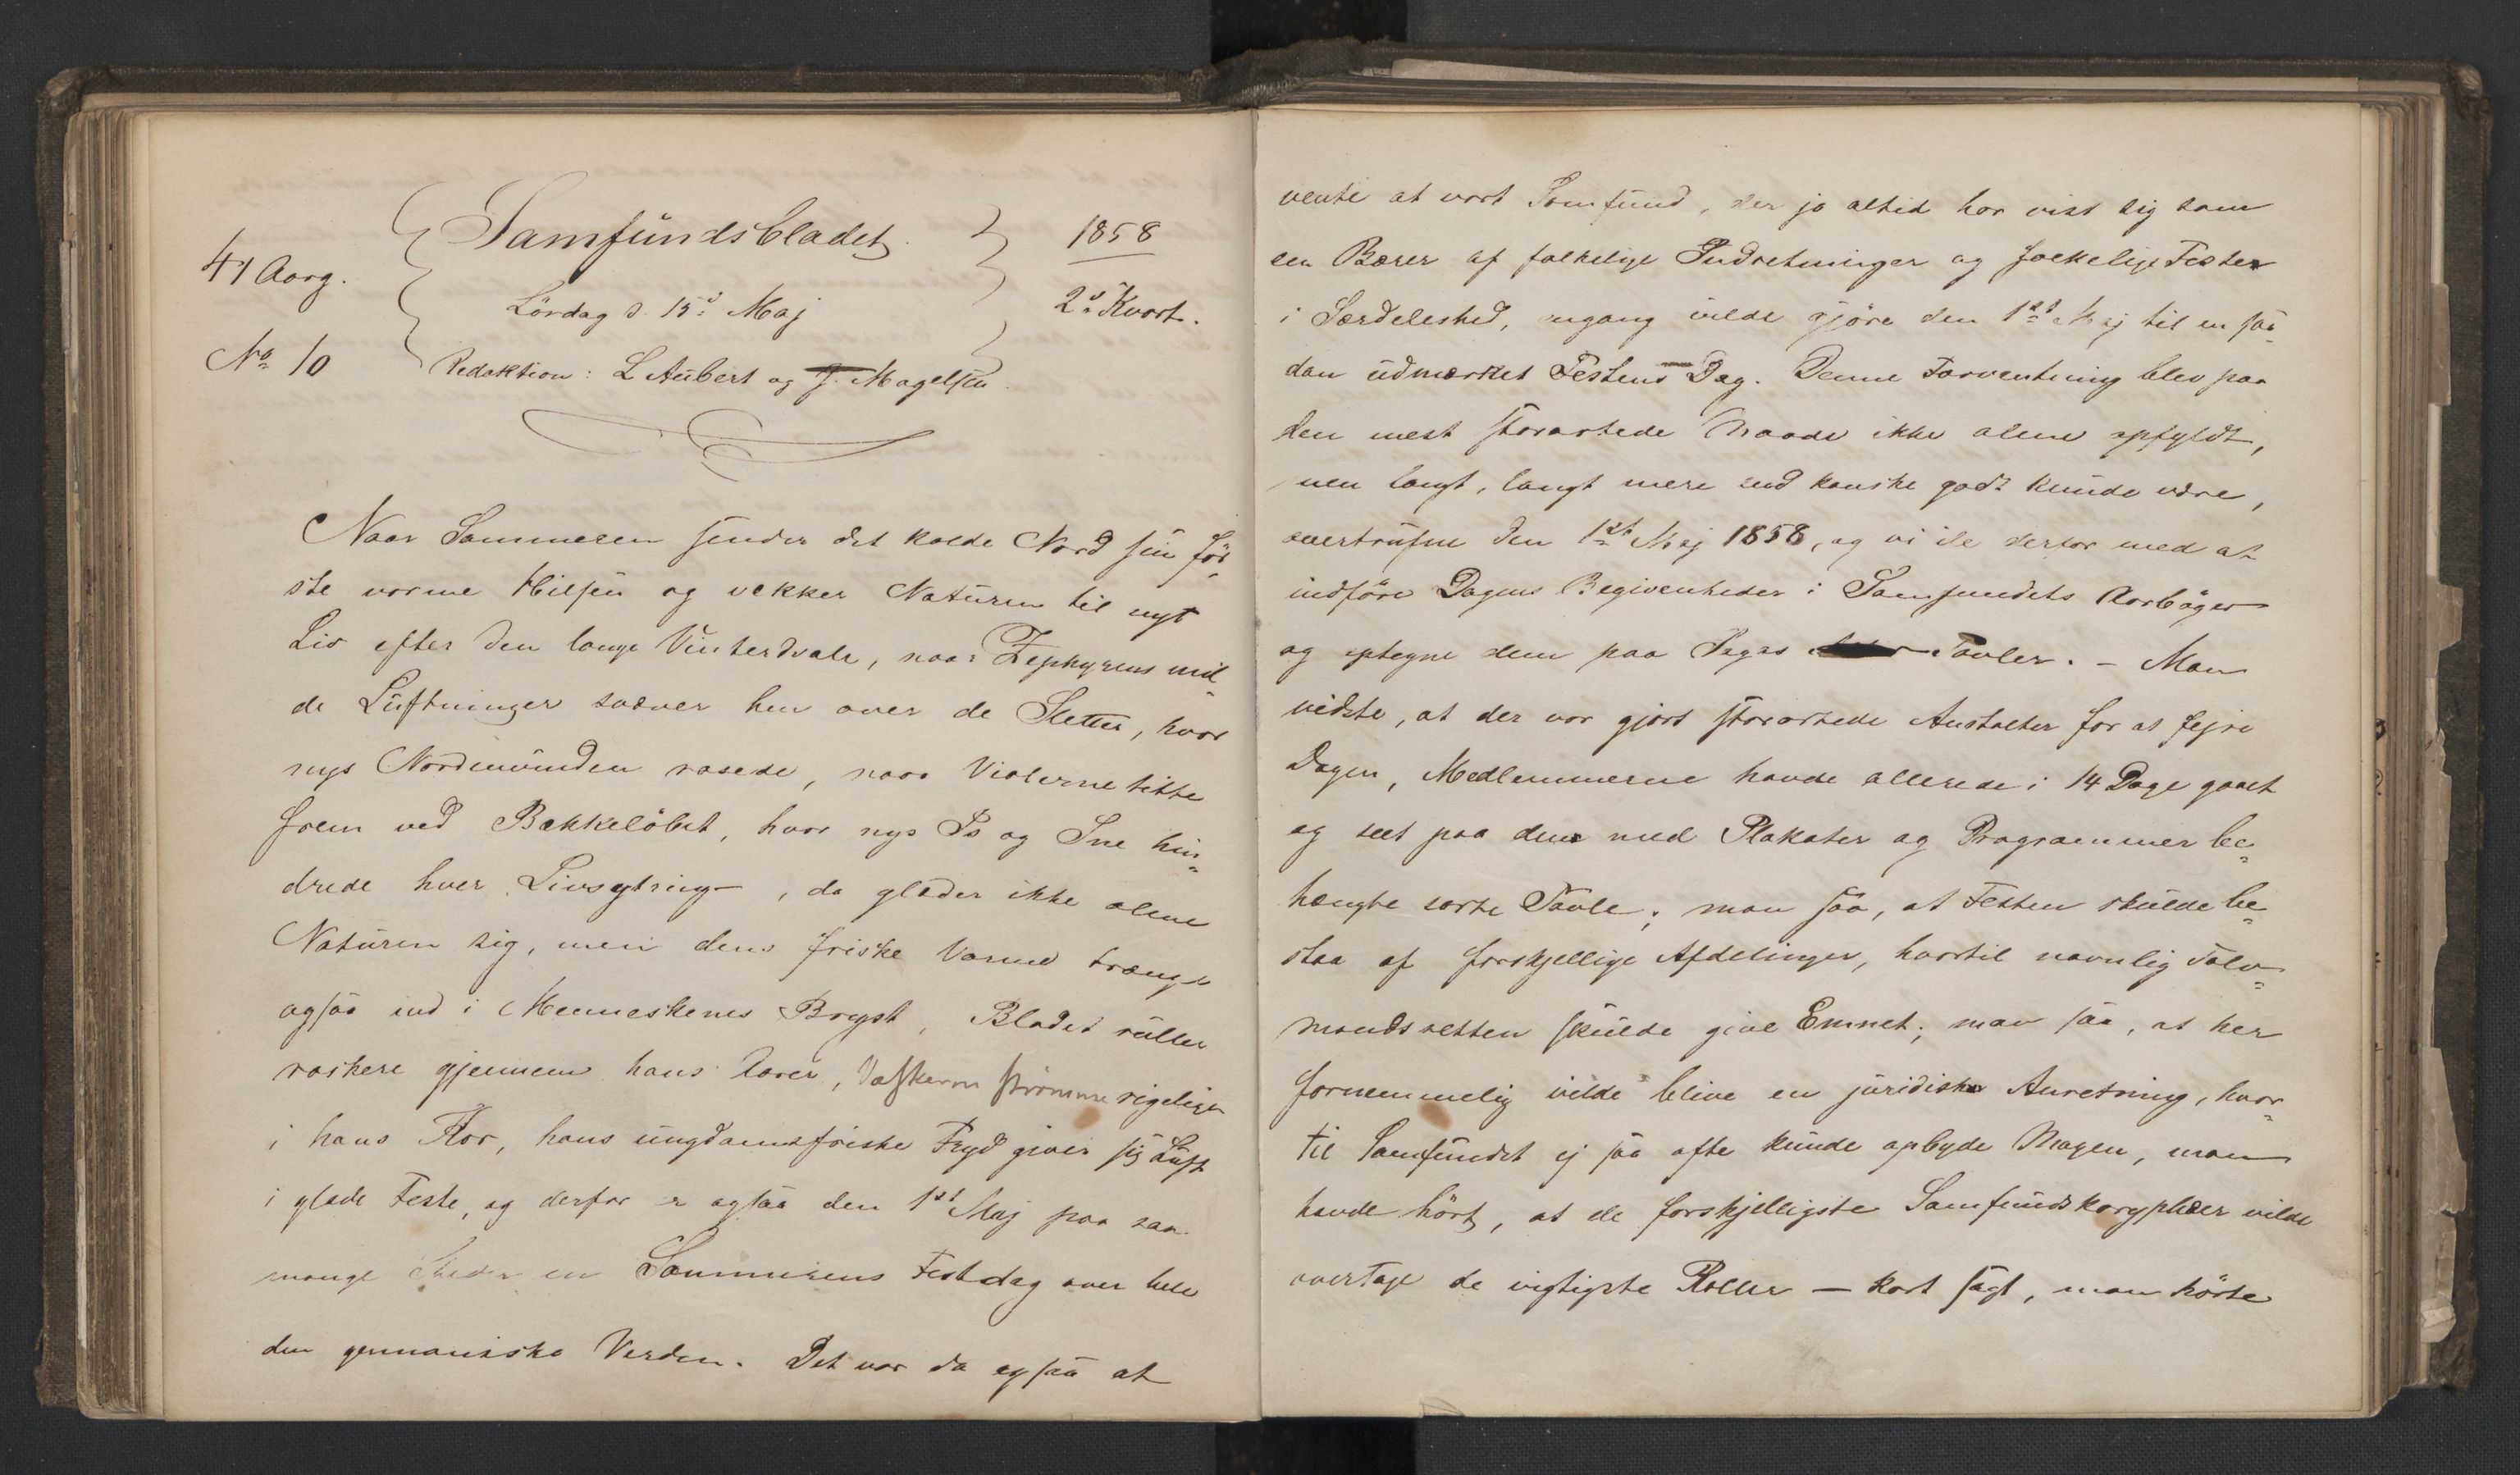 Samfundsbladet
1858
41 Aarg.
Lördag d. 15d Maj
2d Kvart.
No 10
Redaktion: L Aubert og J. Magelsen.
Naar Sommeren sender det kolde Nord sin för-
ste varme Hilsen og vekker Naturen til nyt
Liv efter den lange Vinterdvale, naar Zephyrens mil-
de Luftninger svæver hen over de Sletter, hvor
nys Nordenvinden rasede, naar Violerne titte
frem ved Bækkelöbet, hvor nys Is og Sne hin-
drede hver Livsytring, da glæder ikke alene
Naturen sig, men dens friske Varme trænge
ogsaa ind i Menneskenes Bryst, Blodet ruller
raskere gjennem hans Aarer, Vædskerne strömme rigeligen
i hans Flor, hans ungdomsfriske Fryd giver sig Luft
i glade Feste, og derfor er ogsaa den 1st Maj paa saa
mange Steder en Sommerens Festdag over hele
den germaniske Verden. Det var da ogsaa at
vente at vort Samfund, der jo altid har vist sig som
en Bærer af folkelige Indretninger og folkelige Fester
i Særdeleshed, engang vilde gjöre den 1st Maj til en saa-
dan udmærket Festens Dag. Denne Forventning blev paa
den mest storartede Maade ikke alene opfyldt,
men langt, langt mere end kanske godt kunde være,
overtrufne den 1st Maj 1858, og vi ile derfor med at
indföre Dagens Begivenheder i Samfundets Aarböger
og optegne dem paa Sagas Tavler. – Man
vidste, at der var gjort storartede Anstalter for at fejre
Dagen, Medlemmerne havde allerede i 14 Dage gaaet
og seet paa den med Plakater og Programmer be-
hængte sorte Tavle; man saa, at Festen skulde be-
staa af forskjellige Afdelinger, hvortil navnlig Tolv-
mandsretten skulde give Emnet; man saa, at her
fornemmelig vilde blive en juridisk Anretning, hvor-
til Samfundet ej saa ofte kunde opbyde Magen, man
havde hört, at de forskjelligste Samfundskoryphæer vilde
overtage de vigtigste Roller – kort sagt, man hörte